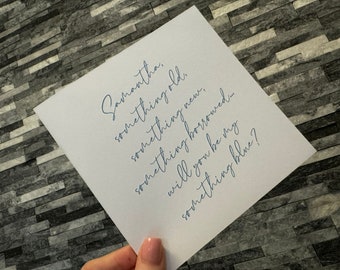 Samantha,
something old,
something new,
something borrowed...
will you be my
something blue?